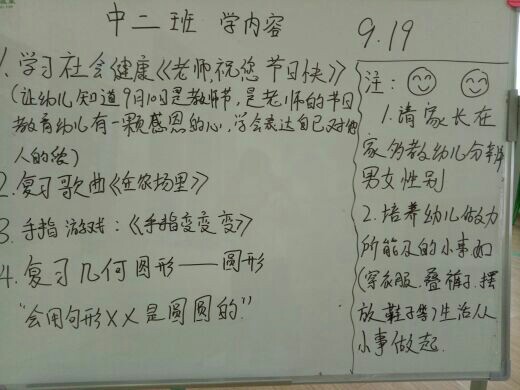 中二班 学内容
9.19
1.学习社会健康《老师,祝您节日快》
(让幼儿知道9月10日是教师节,是老师的节日
教育幼儿有一颗感恩的心,学会表达自己对他
人的爱)
2.复习歌曲《在农场里》
3.手指游戏:《手指变变变》
4.复习几何图形——圆形
“会用句形XX是圆圆的.”
注:
1.请家长在
家多教幼儿分辨
男女性别
2.培养幼儿做力
所能及的小事如
(穿衣服.叠裤子.摆
放鞋子等)生活从
小事做起.